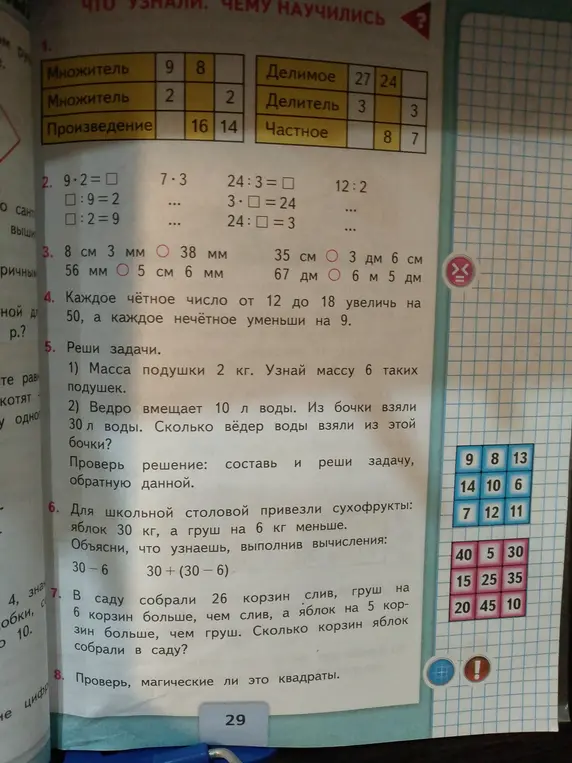 ЧТО УЗНАЛИ. ЧЕМУ НАУЧИЛИСЬ
?
1.
Множитель 9 8
Множитель 2 2
Произведение 16 14
Делимое 27 24
Делитель 3 3
Частное 8 7
2. 9·2=□ 7·3 24:3=□ 12:2
□:9=2 ... 3·□=24 ...
□:2=9 ... 24:□=3 ...
3. 8 см 3 мм ○ 38 мм 35 см ○ 3 дм 6 см
56 мм ○ 5 см 6 мм 67 дм ○ 6 м 5 дм
4. Каждое чётное число от 12 до 18 увеличь на
50, а каждое нечётное уменьши на 9.
5. Реши задачи.
1) Масса подушки 2 кг. Узнай массу 6 таких
подушек.
2) Ведро вмещает 10 л воды. Из бочки взяли
30 л воды. Сколько вёдер воды взяли из этой
бочки?
Проверь решение: составь и реши задачу,
обратную данной.
6. Для школьной столовой привезли сухофрукты:
яблок 30 кг, а груш на 6 кг меньше.
Объясни, что узнаешь, выполнив вычисления:
30−6 30+(30−6)
7. В саду собрали 26 корзин слив, груш на
6 корзин больше, чем слив, а яблок на 5 кор-
зин больше, чем груш. Сколько корзин яблок
собрали в саду?
8. Проверь, магические ли это квадраты.
29
9 8 13
14 10 6
7 12 11
40 5 30
15 25 35
20 45 10
!